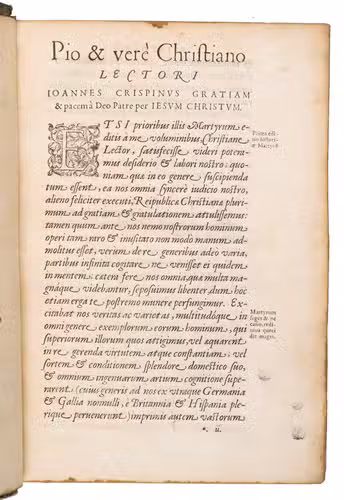 Pio & verè Christiano
LECTORI
IOANNES CRISPINVS GRATIAM
& pacem à Deo Patre per IESVM CHRISTVM.
ETSI prioribus illis Martyrum e-
ditis à me voluminibus, Christiane
Lector, satisfecisse videri potui-
mus desiderio & labori nostro: quo-
niam quæ in eo genere suscipienda
tum essent, ea nos omnia syncerè iudicio nostro,
alieno feliciter executi, Reipublicæ Christianæ pluri-
mum ad gratiam & gratulationem attulissemus:
tamen quum ante nos nemo nostrorum hominum
operi tam raro & inusitato non modò manum ad-
molitus esset, verum de re generibus adeò varia,
partibus infinita cogitare ne venisset ei quidem
in mentem: catenæ ferè nos omnia, quæ multa ma-
gnáque videbantur, seposuimus libenter, dum hoc
etiam ergà te postremò munere perfungimur. Ex-
citabat nos veritas ac varietas, multitudóque in
omni genere exemplorum eorum hominum, qui
superiorum illorum quos attigimus, vel æquarent
in re gerenda virtutem atque constantiam: vel
sortem & conditionem splendore domestico suo,
& omnium ingenuarum artium cognitione supe-
rarent (cuius generis ad nos ex vtraque Germania
& Gallia nonnulli, è Britannia & Hispania ple-
rique peruenerunt) imprimis autem vastorum
Martyrum
*. ii.